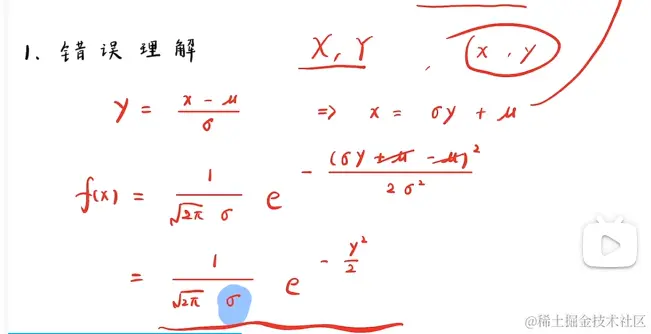 1. 错误理解 X, Y , (x, y)
y = \frac{x - μ}{σ} ⇒ x = σy + μ
f(x) = \frac{1}{\sqrt{2π} σ} e^{-\frac{(σy + μ - μ)^2}{2σ^2}}
= \frac{1}{\sqrt{2π} σ} e^{-\frac{y^2}{2}}
@稀土掘金技术社区